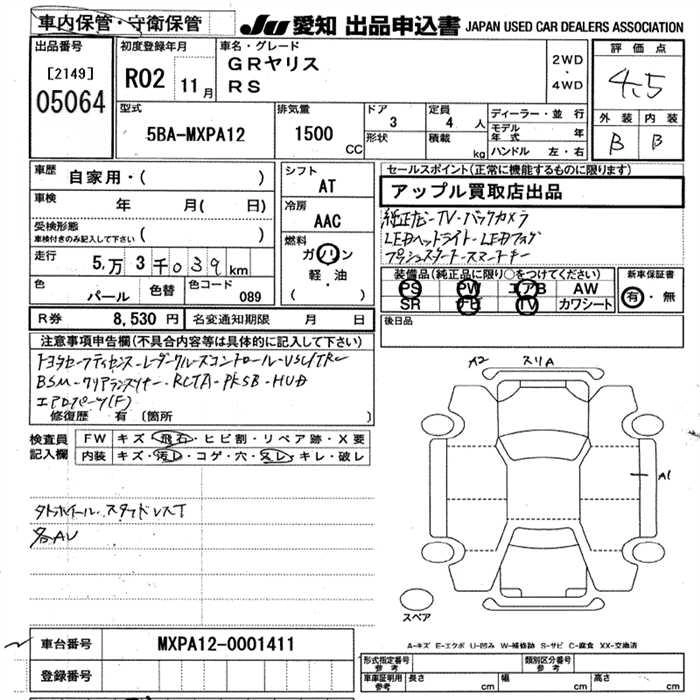 車内保管・守衛保管
JU 愛知 出品申込書 JAPAN USED CAR DEALERS ASSOCIATION
出品番号
[2149]
05064
初度登録年月
R02 11月
車名・グレード
GRヤリス
RS
2WD
・
4WD
評価点
4.5
外装 内装
B B
型式
5BA-MXPA12
排気量
1500 CC
ドア
3
形状
定員
4 人
積載
kg
ディーラー・並行
モデル年式 年
ハンドル 左・右
車歴
自家用・( )
車検 年 月( 日)
受検形態
車検付きのみ記入して下さい ( )
走行 5万3千039km
色 パール 色替 色コード 089
シフト
AT
冷房
AAC
燃料
ガソリン
軽・油
( )
セールスポイント(正常に機能するものに限ります)
アップル買取店出品
純正ナビ・TV・バックカメラ
LEDヘッドライト・LEDフォグ
プッシュスタート・スマートキー
装備品(純正品に限り○をつけてください)
PS PW エアB AW
SR TV カワシート
新車保証書
有・無
後日品
R券 8,530円 名変通知期限 月 日
注意事項申告欄(不具合内容等は具体的に記入して下さい)
トヨタセーフティセンス・レーダークルーズコントロール・VSC/TRC
BSM・クリアランスソナー・RCTA・PKSB・HUD
エアロパーツ(F)
修復歴 有 〔箇所 〕
検査員記入欄
FW キズ・飛石・ヒビ割・リペア跡・X要
内装 キズ・汚レ・コゲ・穴・スレ・キレ・破レ
各AU
A2 スリA
A1
スペア
A-キズ E-エクボ U-凹み W-補修跡 S-サビ C-腐食 XX-交換済
車台番号 MXPA12-0001411
登録番号
形式指定番号 参考 類別区分番号 参考
車庫証明用 参考 長さ cm 幅 cm 高さ cm